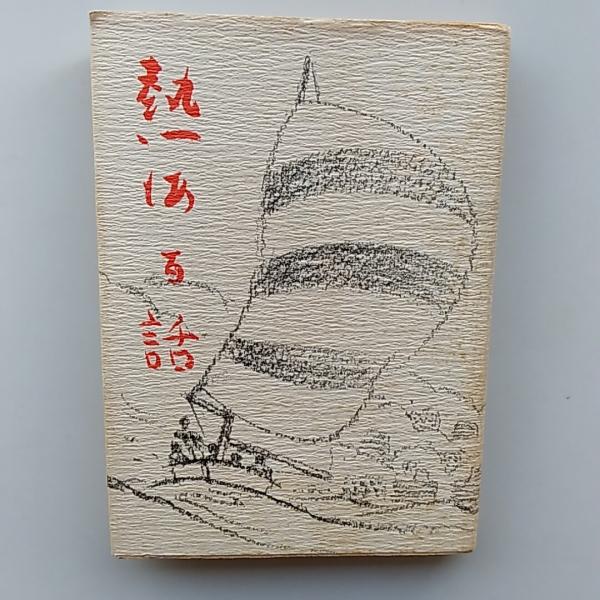 熱海百話